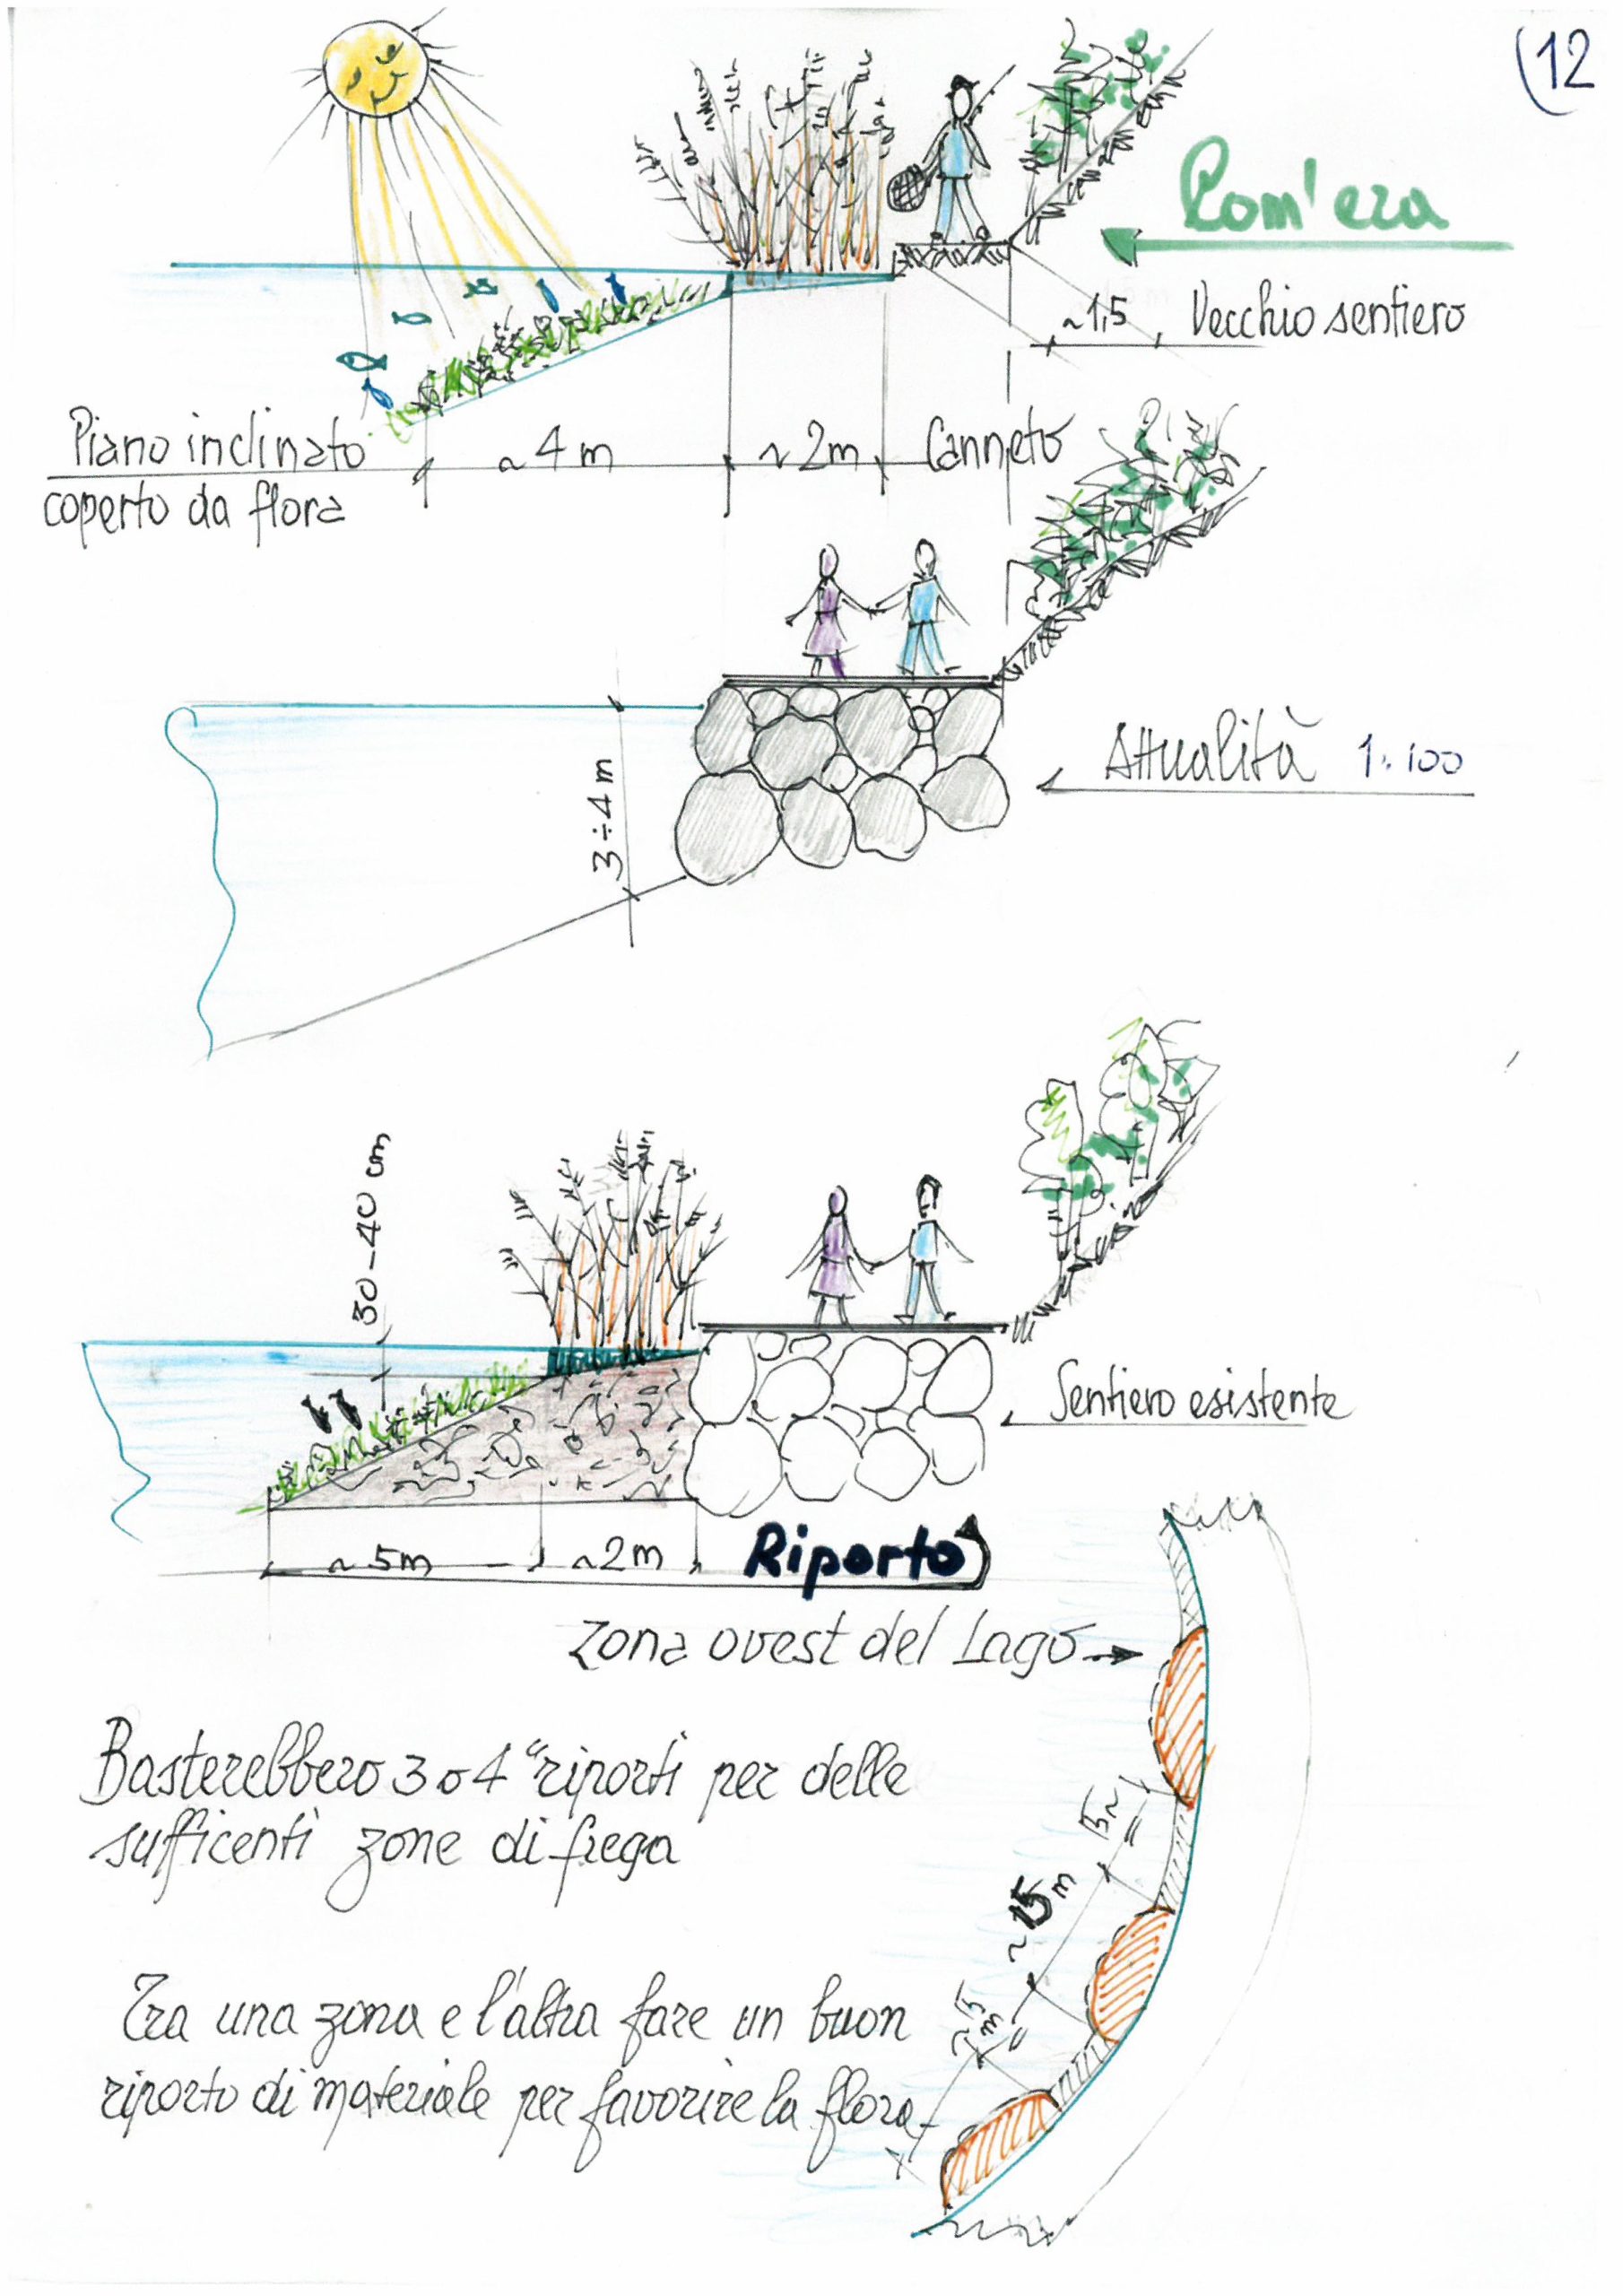 (12
Com'era
~1,5 Vecchio sentiero
Piano inclinato
coperto da flora
~4 m
~2m
Canneto
Attualità 1:100
3÷4 m
30-40 cm
Sentiero esistente
~5m
~2m
Riporto
Zona ovest del Lago
Basterebbero 3 o 4 "riporti per delle
sufficenti zone di frega
~15 m
Tra una zona e l'altra fare un buon
riporto di materiale per favorire la flora